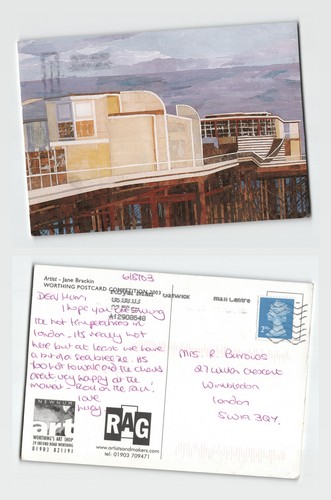 Artist - Jane Brackin
WORTHING POSTCARD COMPETITION 2003
6/8/03
Gatwick
Mail Centre
A12908648
2nd
Dear Mum
I hope you are
the hot temperatures in
London. Its really hot
here but at least we have
a bit of a sea breeze. Its
too hot for me and the
aren't very happy at the
moment. Roll on the rain!
Love
Mrs R. Burrows
27 Crescent
Wimbledon
London
SW19 3QY.
art
WORTHING'S ART SHOP
01903 821191
RAG
www.artistsandmakers.com
tel: 01903 709471